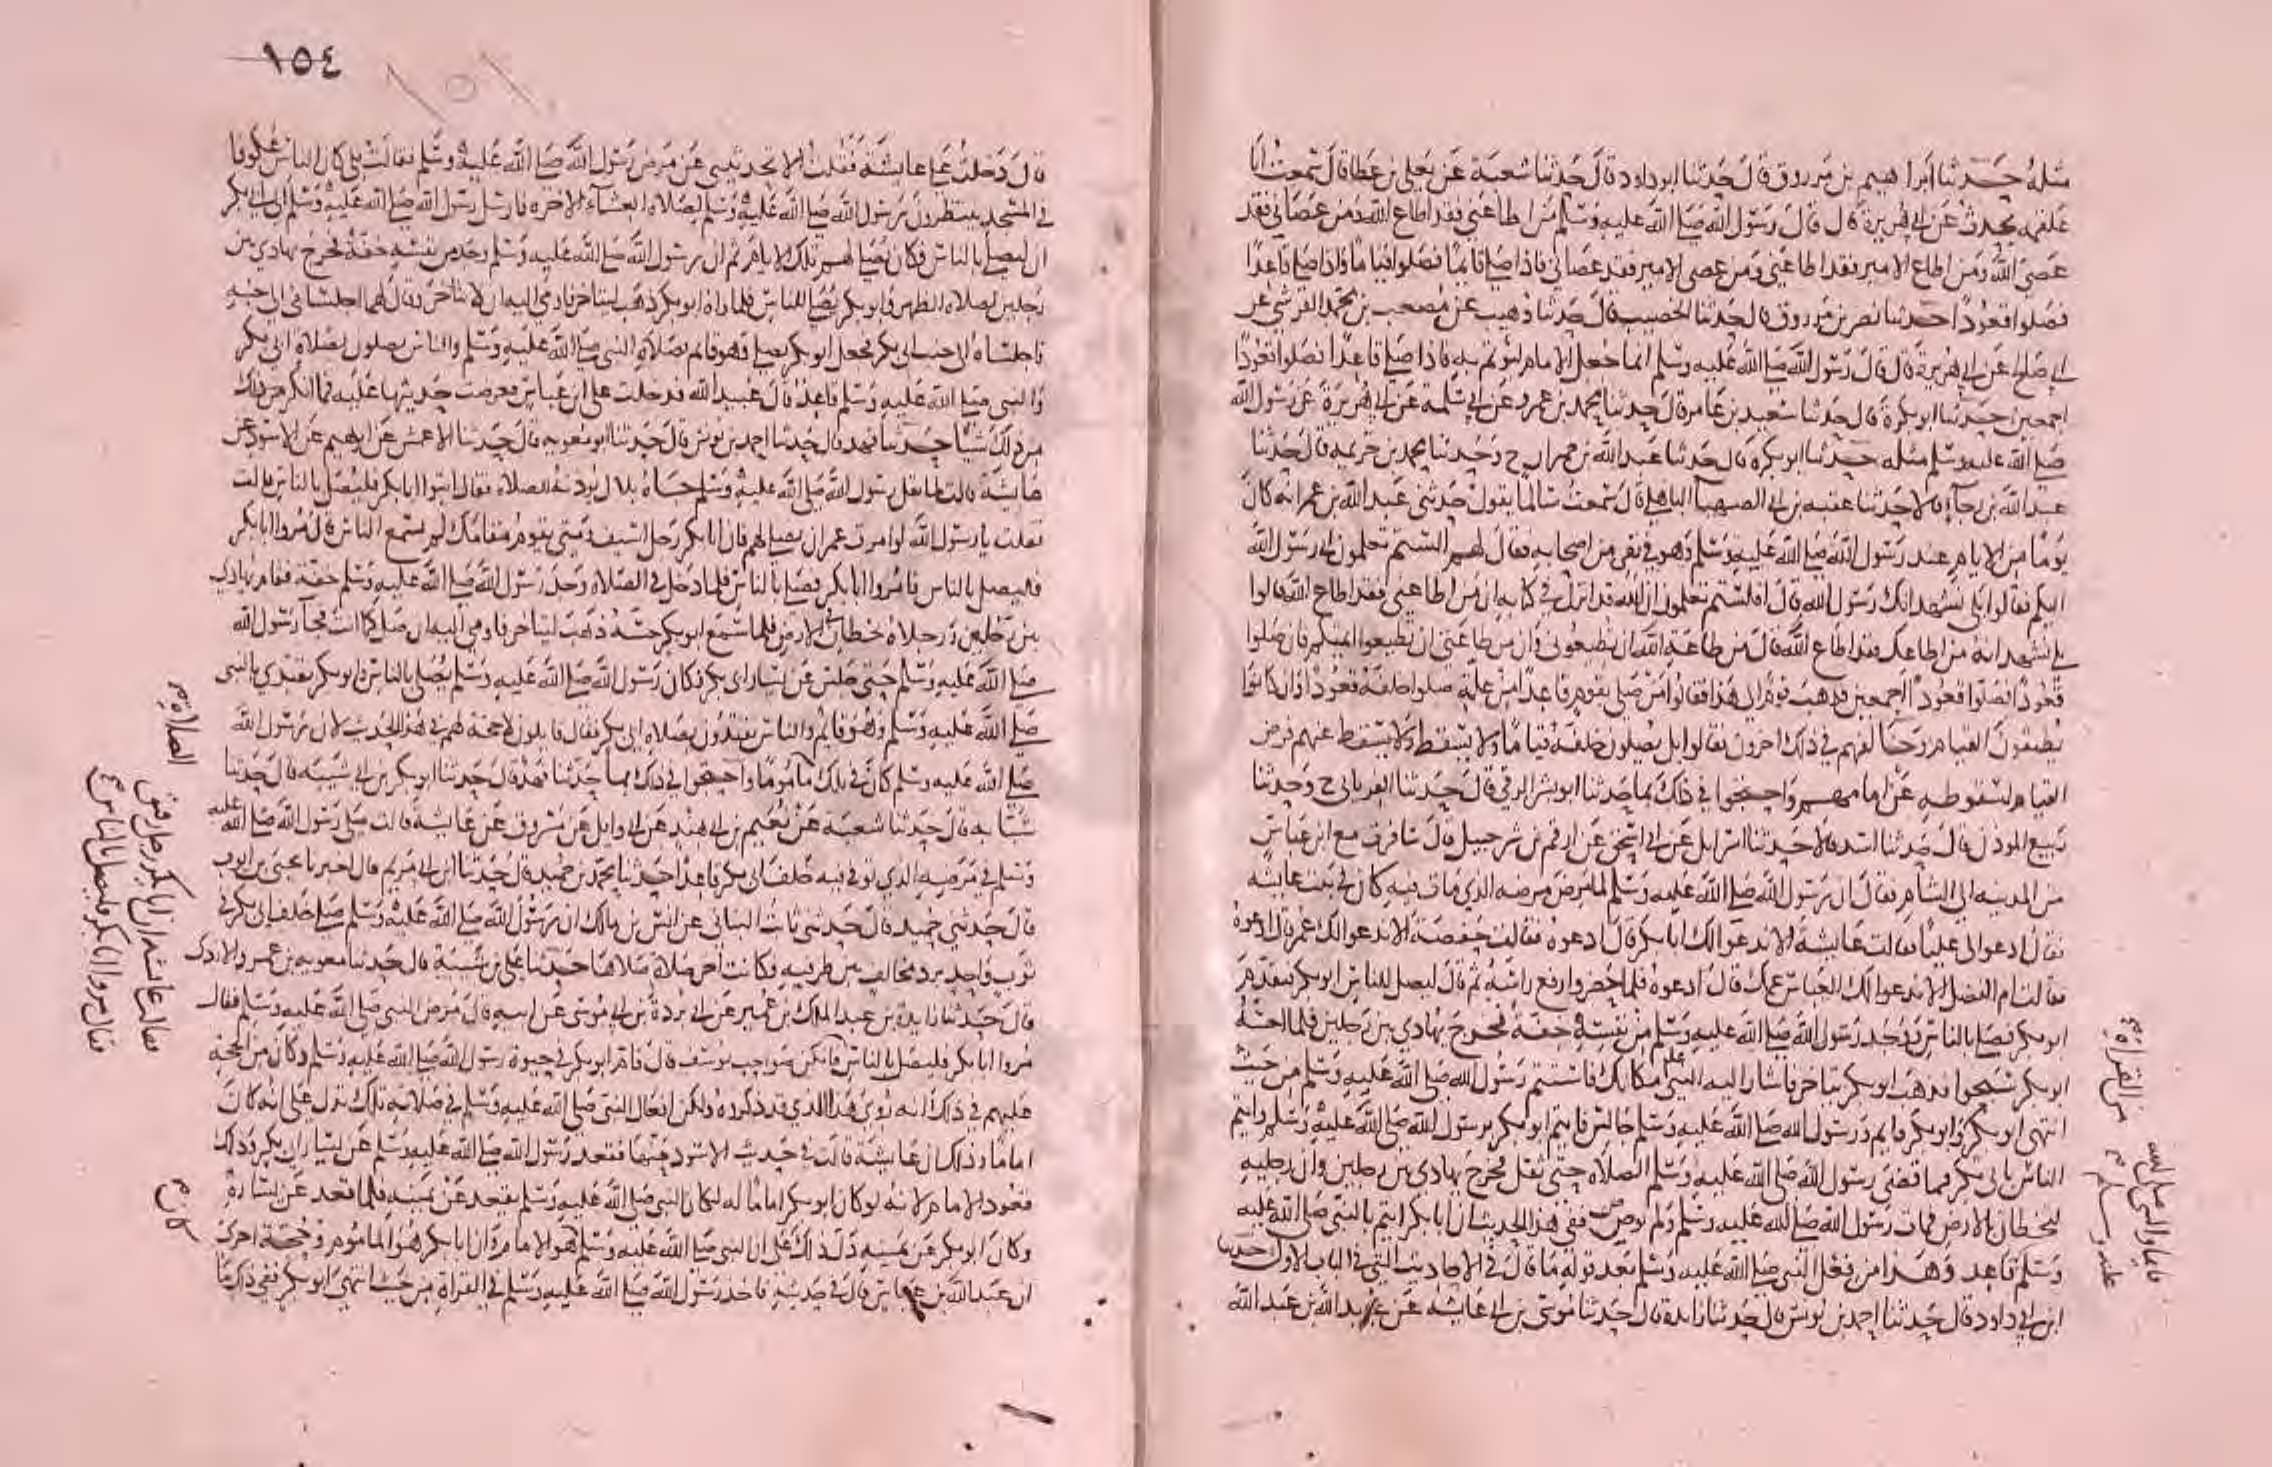 مثله حدثنا ابراهيم بن مرزوق قال حدثنا ابو داود قال حدثنا شعبة عن يعلى بن عطا قال سمعت ابا
علقمه يحدث عن ابي هريرة قال قال رسول الله صلى الله عليه وسلم من اطاعني فقد اطاع الله ومن عصاني فقد
عصى الله ومن اطاع الامير فقد اطاعني ومن عصى الامير فقد عصاني فاذا صلى قائما فصلوا قياما واذا صلى قاعدا
فصلوا قعودا حدثنا نصر بن مرزوق قال حدثنا الخصيب قال حدثنا وهيب عن مصعب بن محمد القرشي عن
ابي صالح عن ابي هريرة قال قال رسول الله صلى الله عليه وسلم انما جعل الامام ليؤتم به فاذا صلى قاعدا فصلوا قعودا
اجمعين حدثنا ابو بكرة قال حدثنا سعيد بن عامر قال حدثنا محمد بن عمرو عن ابي سلمة عن ابي هريرة عن رسول الله
صلى الله عليه وسلم مثله حدثنا ابو بكره قال حدثنا عبد الله بن حمران ح وحدثنا محمد بن خزيمه قال حدثنا
عبد الله بن رجآء قالا حدثنا عقبه بن ابي الصهبآ الباهلي قال سمعت سالما يقول حدثني عبد الله بن عمر انه كان
يوما من الايام عند رسول الله صلى الله عليه وسلم وهو في نفر من اصحابه فقال لهم الستم تعلمون اني رسول الله
اليكم فقالوا بلى نشهد انك رسول الله قال افلستم تعلمون ان الله قد انزل في كتابه ان من اطاعني فقد اطاع الله قالوا
بلى نشهد انه من اطاعك فقد اطاع الله قال فمن طاعة الله ان تطيعوني وان من طاعتي ان تطيعوا ائمتكم فان صلوا
قعودا فصلوا قعودا اجمعين فذهب قوم الى هذا فقالوا من صلى بقوم قاعدا من علة صلوا خلفه قعودا وان كانوا
يطيقون القيام وخالفهم في ذلك اخرون فقالوا بل يصلون خلفه قياما ولا يسقط عنهم فرض
القيام لسقوطه عن امامهم واحتجوا في ذلك بما حدثنا ابو بشر الرقي قال حدثنا الفريابي ح وحدثنا
ربيع المؤذن قال حدثنا اسد قالا حدثنا اسرائل عن ابي اسحق عن ارقم بن شرحبيل قال سافرت مع ابن عباس
من المدينه الى الشام فقال ان رسول الله صلى الله عليه وسلم لما مرض مرضه الذي مات فيه كان في بيت عايشه
فقال ادعوا لي عليا فقالت عايشة الا ندعوا لك ابا بكر قال ادعوه فقالت حفصة الا ندعوا لك عمر قال ادعوه
فقالت ام الفضل الا ندعوا لك العباس عمك قال ادعوه فلما حضروا رفع راسه ثم قال ليصل للناس ابو بكر فتقدم
ابو بكر فصلى بالناس ووجد رسول الله صلى الله عليه وسلم من نفسه خفة فخرج يهادي بين رجلين فلما احسه
ابو بكر سبحوا فذهب ابو بكر يتاخر فاشار اليه النبي صلى الله عليه وسلم مكانك فاستتم رسول الله صلى الله عليه وسلم من حيث
انتهى ابو بكر وابو بكر قايم ورسول الله صلى الله عليه وسلم جالس فايتم ابو بكر برسول الله صلى الله عليه وسلم وايتم
الناس بابي بكر فما قضى رسول الله صلى الله عليه وسلم الصلاة حتى ثقل فخرج يهادي بين رجلين وان رجليه
لتخطان بالارض فمات رسول الله صلى الله عليه وسلم ولم يوص ففي هذا الحديث ان ابا بكر ايتم بالنبي صلى الله عليه
وسلم قاعد وهذا من فعل النبي صلى الله عليه وسلم بعد قوله ما قال في الاحاديث التي في الباب الاول حدثنا
ابن ابي داود قال حدثنا احمد بن يونس قال حدثنا زائدة قال حدثنا موسى بن ابي عايشه عن عبيد الله بن عبد الله
من القراة
قايما والنبي صلى الله
عليه وسلم
١٥٤
قال دخلت على عايشة فقلت الا تحدثيني عن مرض رسول الله صلى الله عليه وسلم فقالت بلى كان الناس عكوفا
في المسجد ينتظرون رسول الله صلى الله عليه وسلم لصلاة العشآء الاخره فارسل رسول الله صلى الله عليه وسلم الى ابي بكر
ان يصلي بالناس فكان يصلي لهم تلك الايام ثم ان رسول الله صلى الله عليه وسلم وجد من نفسه خفة فخرج يهادي بين
رجلين لصلاة الظهر وابو بكر يصلي للناس فلما راه ابو بكر ذهب ليتاخر فاومى اليه ان لا يتاخر وقال لهما اجلساني الى جنبه
فاجلساه الى جنب ابي بكر فجعل ابو بكر يصلي وهو قائم بصلاة النبي صلى الله عليه وسلم والناس يصلون بصلاة ابي بكر
والنبي صلى الله عليه وسلم قاعد قال عبيد الله فدخلت على ابن عباس فعرضت حديثها عليه فما انكر من ذلك
شيئا حدثنا فهد قال حدثنا احمد بن يونس قال حدثنا ابو معويه قال حدثنا الاعمش عن ابرهيم عن الاسود عن
عايشة قالت لما ثقل رسول الله صلى الله عليه وسلم جاءه بلال يؤذنه للصلاة فقال ايتوا ابا بكر فليصل بالناس قالت
فقلت يا رسول الله لو امرت عمر ان يصلي لهم فان ابا بكر رجل اسيف ومتى يقوم مقامك لم يسمع الناس قال مروا ابا بكر
فليصل بالناس فامروا ابا بكر فصلى بالناس فلما دخل في الصلاة وجد رسول الله صلى الله عليه وسلم خفة فقام يهادي
بين رجلين ورجلاه تخطان الارض فلما سمع ابو بكر حسه ذهب ليتاخر فاومى اليه ان صل كما انت فجآ رسول الله
صلى الله عليه وسلم حتى جلس عن يسار ابي بكر فكان رسول الله صلى الله عليه وسلم يصلي بالناس وابو بكر يقتدي بالنبي
صلى الله عليه وسلم وهو قائم والناس يقتدون بصلاة ابي بكر فقال قايلون لا حجة لهم في هذا الحديث لان رسول الله
صلى الله عليه وسلم كان في تلك ماموما واحتجوا في ذلك بما حدثنا فهد قال حدثنا ابو بكر بن ابي شيبه قال حدثنا
شبابه قال حدثنا شعبة عن نعيم بن ابي هند عن ابي وايل عن مسروق عن عايشة قالت صلى رسول الله صلى الله عليه
وسلم في مرضه الذي توفي فيه خلف ابي بكر قاعدا حدثنا محمد بن حميد قال حدثنا ابن ابي مريم قال اخبرنا يحيى بن ايوب
قال حدثني حميد قال حدثني ثابت البناني عن انس بن مالك ان رسول الله صلى الله عليه وسلم صلى خلف ابي بكر في
ثوب واحد برد مخالف بين طرفيه وكانت اخر صلاة صلاها حدثنا علي بن شيبة قال حدثنا معويه بن عمرو الازدي
قال حدثنا زايدة عن عبد الملك بن عمير عن ابي بردة بن ابي موسى عن ابيه قال مرض النبي صلى الله عليه وسلم فقال
مروا ابا بكر فليصل بالناس فانكن صواحب يوسف قال فام ابو بكر في حيوة رسول الله صلى الله عليه وسلم وكان من الحجة
عليهم في ذلك انه روي هذا الذي قد ذكروه ولكن افعال النبي صلى الله عليه وسلم في صلاته تلك تدل على انه كان
اماما وذلك ان عايشة قالت في حديث الاسود عنها فقعد رسول الله صلى الله عليه وسلم عن يسار ابي بكر وذلك
قعود الامام لانه لو كان ابو بكر اماما له لكان النبي صلى الله عليه وسلم يقعد عن يمينه فلما قعد عن يساره
وكان ابو بكر عن يمينه دل ذلك على ان النبي صلى الله عليه وسلم هو الامام وان ابا بكر هو المأموم وحجة اخرى
ان عبد الله بن عباس قال في حديثه فاخذ رسول الله صلى الله عليه وسلم في القراة من حيث انتهى ابو بكر ففي ذلك ما
الصلاة
فقالت عايشه ان ابا بكر رجل رقيق
فقال مروا ابا بكر فليصل بالناس